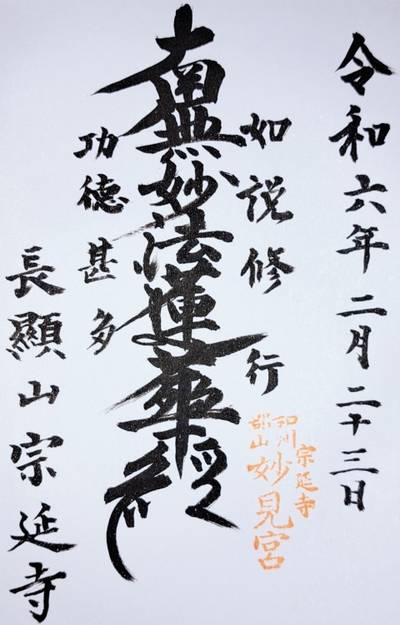 令和六年二月二十三日
如説修行
和州
郡山
宗延寺
妙見宮
南無妙法蓮華經
功徳甚多
長顯山宗延寺